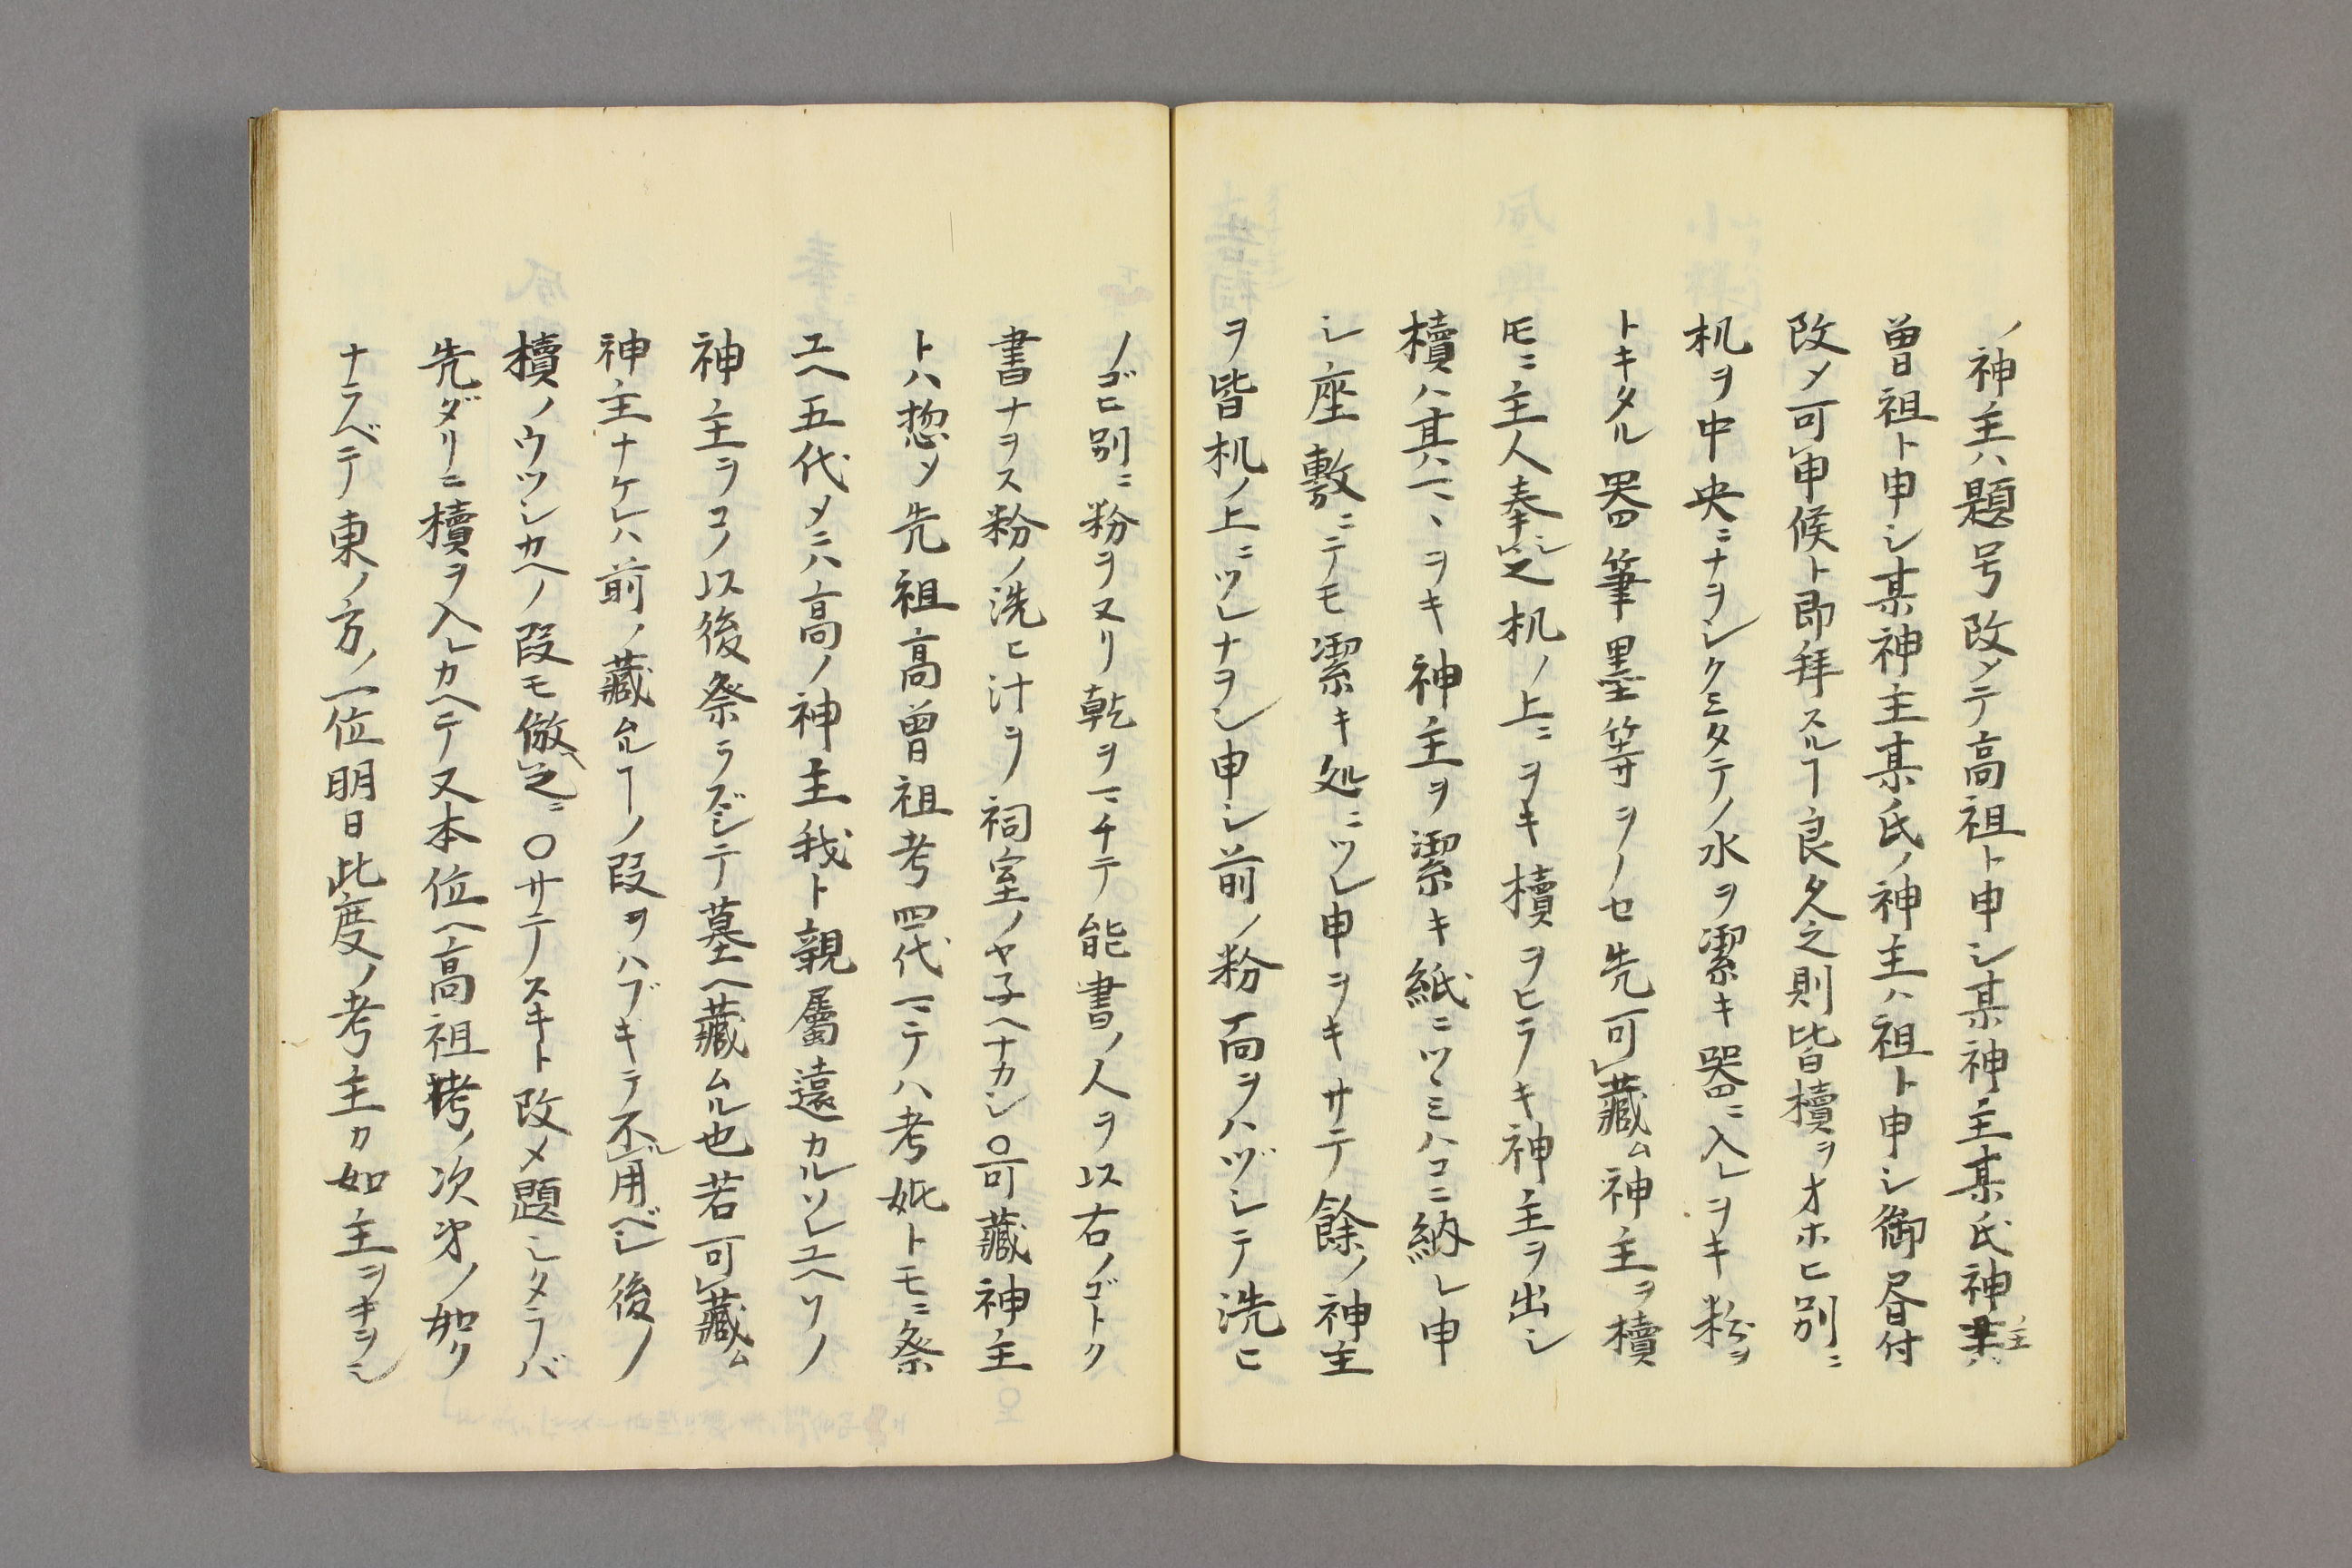 ノ神主ハ題号改メテ高祖ト申シ某神主某氏神主
曽祖ト申シ某神主某氏ノ神主ハ祖ト申シ御昏付
改メ可申候ト即拝スルヿ良久之則皆櫝ヲオホヒ別ニ
机ヲ中央ニナヲシクミタテノ水ヲ潔キ器ニ入レヲキ粉ヲ
トキタル器筆墨等ヲノセ先可藏ム神主ヲ櫝
𪜈ニ主人奉シ之机ノ上ニヲキ櫝ヲヒラキ神主ヲ出シ
櫝ハ其ハヽヲキ神主ヲ潔キ紙ニツヽミハコニ納レ申
シ座敷ニテモ潔キ処ニツレ申ヲキサテ餘ノ神主
ヲ皆机ノ上ニツレナヲシ申シ前ノ粉面ヲハヅシテ洗ヒ
ノゴヒ別ニ粉ヲヌリ乾ヲマチテ能書ノ人ヲ以右ノゴトク
書ナヲス粉ノ洗ヒ汁ヲ祠室ノヤ子ヘナカシ〇可藏神主
トハ惣メ先祖高曽祖考四代マテハ考妣トモニ祭
ユヘ五代メニハ高ノ神主我ト親屬遠カルソレユヘソノ
神主ヲコノ以後祭ラズシテ墓ヘ藏ムル也若可藏ム
神主ナケレハ前ノ藏ムルヿノ段ヲハブキテ不用ベシ後ノ
櫝ノウツシカヘノ段モ倣之ニ〇サテノスキト改メ題シタラバ
先ダリニ櫝ヲ入レカヘテ又本位ヘ高祖考ノ次第ノ如ク
ナラベテ東ノ方ノ一位明日此度ノ考主カ如主ヲキヲシ